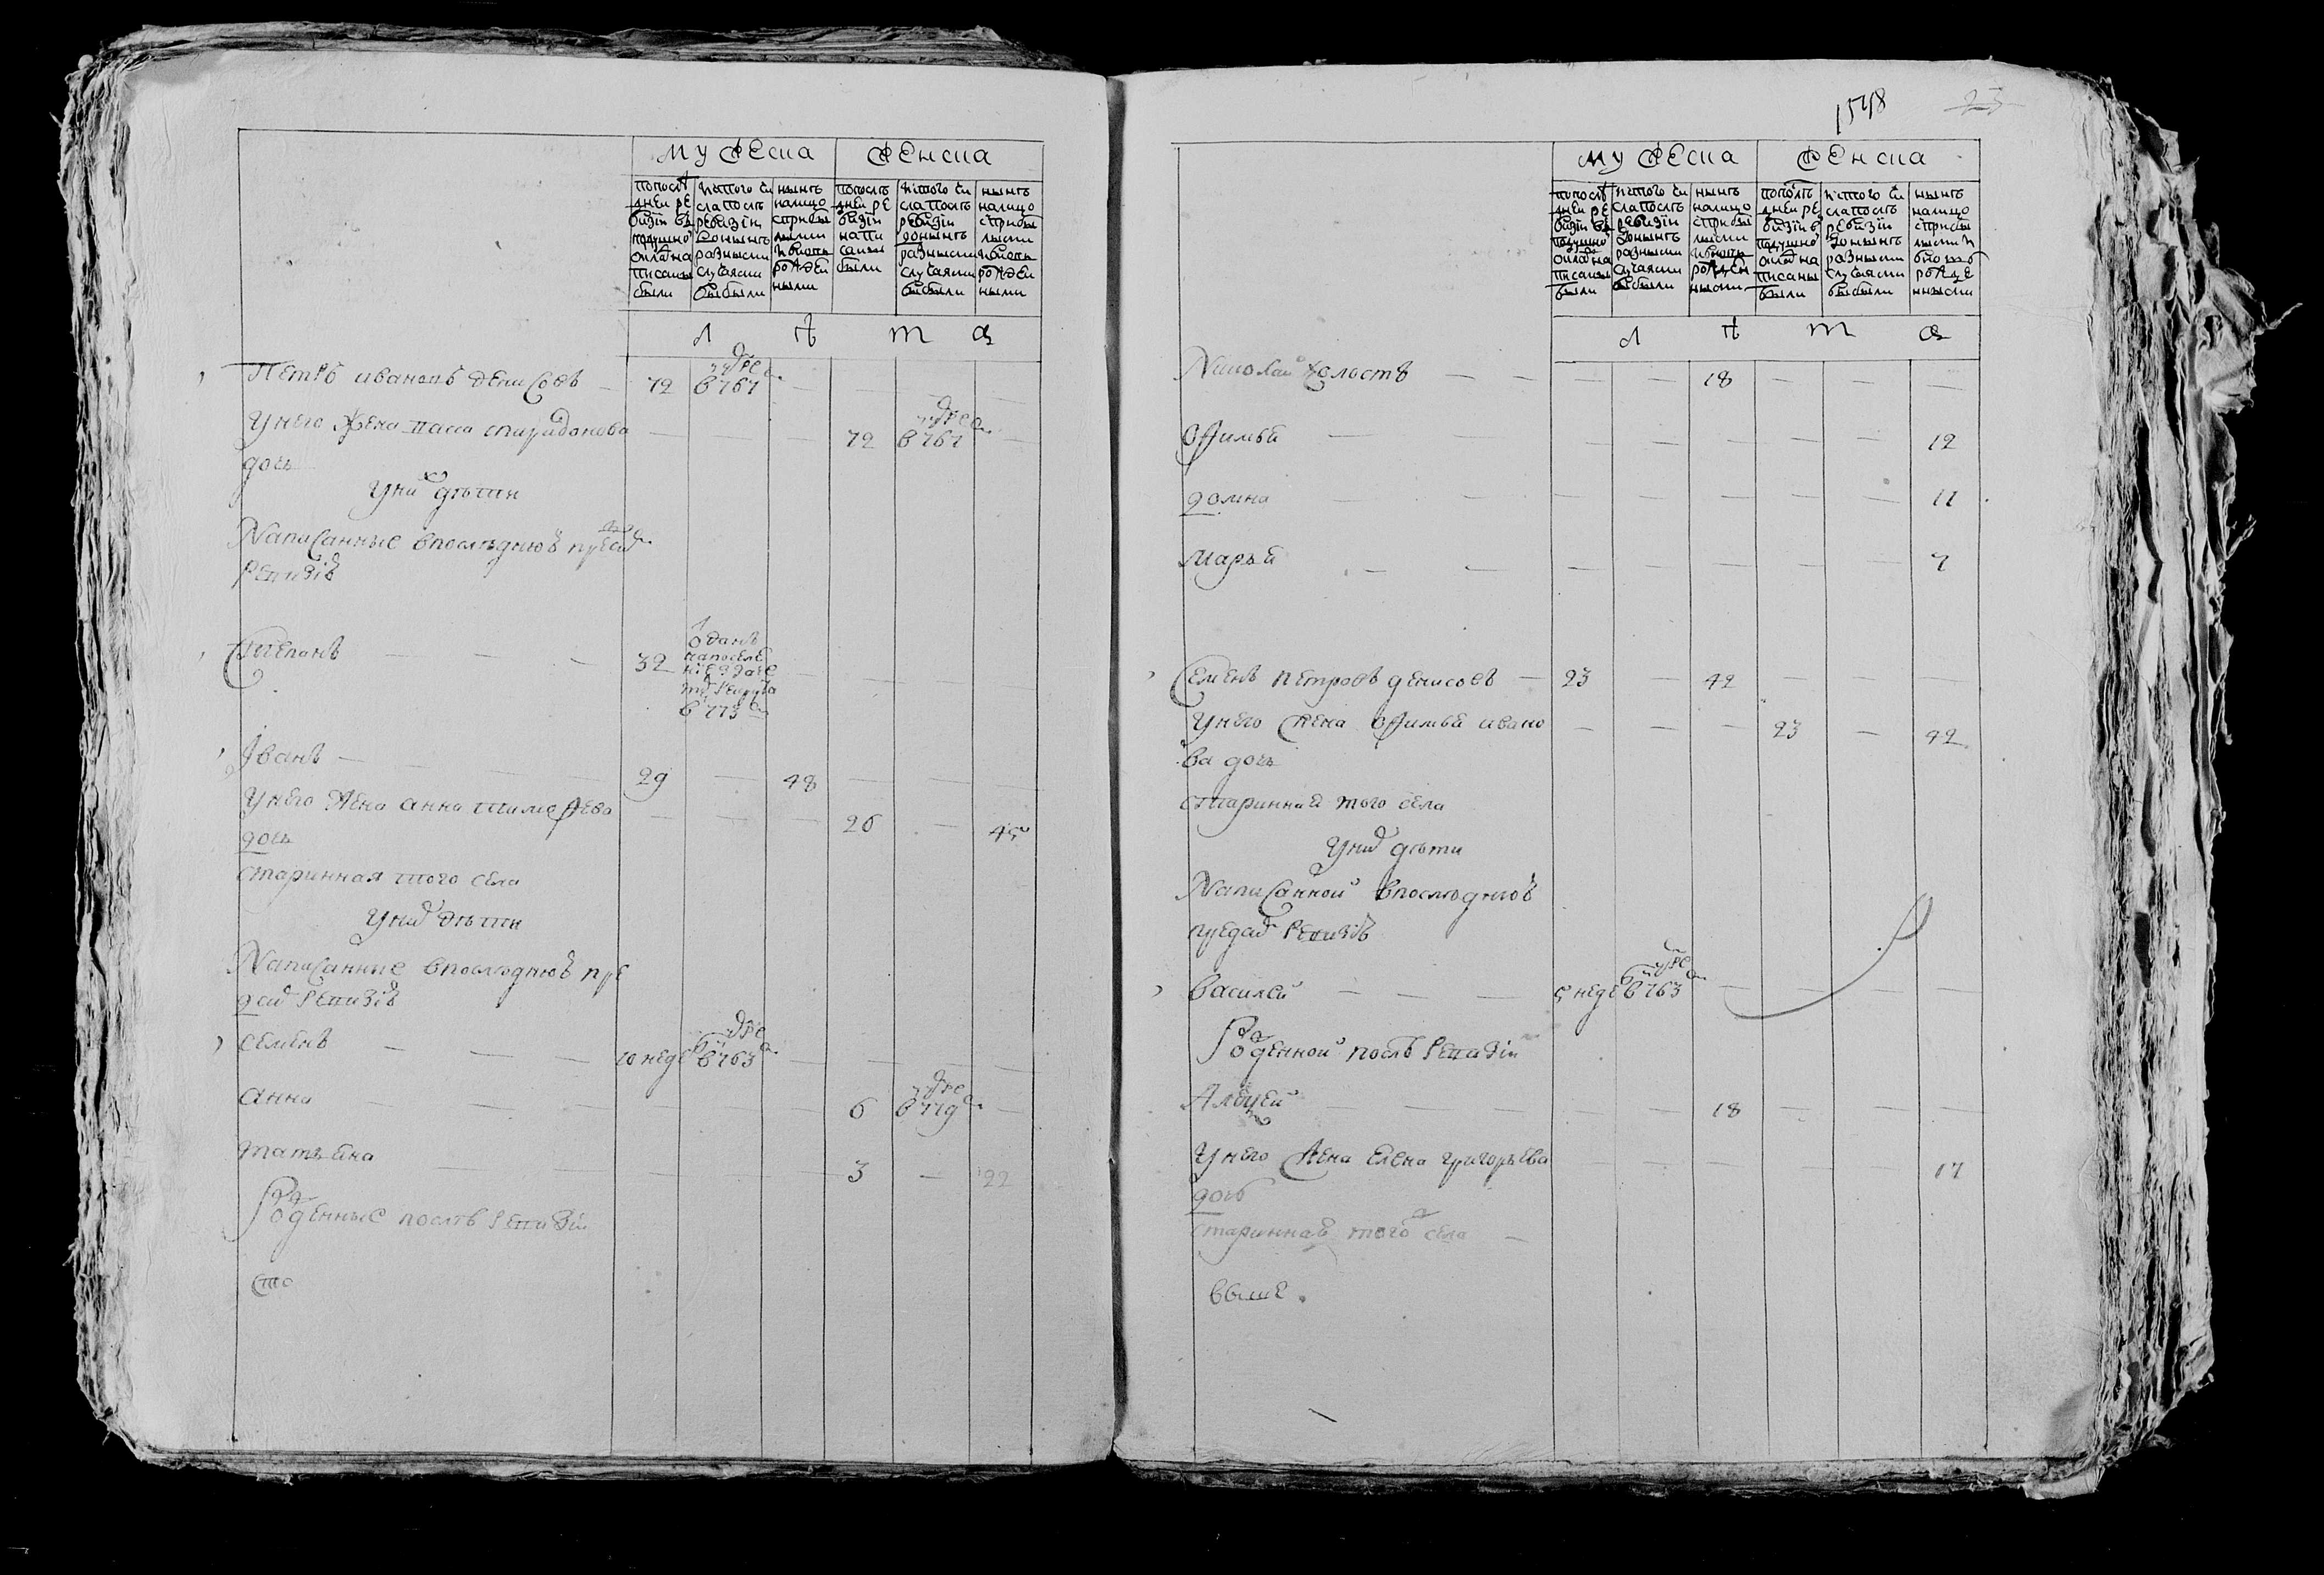 мужеска женска
по послѣ дней ре визiи въ подушной окладъ на писаны были
изтого чи сла послѣ ревизiи донынѣ разными случаями выбыли
нынѣ налицо сприбы лыми и вновь рожден ными
по послѣ дней ре визiи напи саны были
изтого чи сла послѣ ревизiи донынѣ разными случаями выбыли
нынѣ налицо сприбы лыми и вновь рожден ными
л ѣ т а
Петръ ивановъ денисовъ 72 умре в 767 г
Унего жена спиридонова 72 умре в 767 г
дочь
Уних дѣти
Написанные впоследнюю пред
ревизiю
Степанъ 32 отданъ на поселе нiе взаче тъ рекрута в 773 г
Iванъ 29 48
Унего жена анна тимофѣева 26 45
дочь
старинная того села
Уних дѣти
Написанные впоследнюю пре
д ревизiю
семенъ 10 неде умре в 763 г
анна 6 умре в 779 г
татьяна 3 22
Рожденные послѣ ревизiи
1548
23
мужеска женска
по послѣ дней ре визiи въ подушной окладъ на писаны были
изтого чи сла послѣ ревизiи донынѣ разными случаями выбыли
нынѣ налицо сприбы лыми и вновь рожден ными
по послѣ дней ре визiи в подушной окладъ на писаны были
изтого чи сла послѣ ревизiи донынѣ разными случаями выбыли
нынѣ налицо сприбы лыми и вновь рожде нными
л ѣ т а
Николай холостъ 18
Офимья 12
домна 11
марья 7
Семенъ петровъ денисовъ 23 42
Унего жена Офимья ивано 23 42
ва дочь
стариная того села
Уних дѣти
Написанной впоследнюю
пред ревизiю
василей 5 неде умре в 763 г
Рожденной послѣ ревизiи
Андрей 18
Унего жена Елена григорьева 17
дочь
стариная того села
выше.